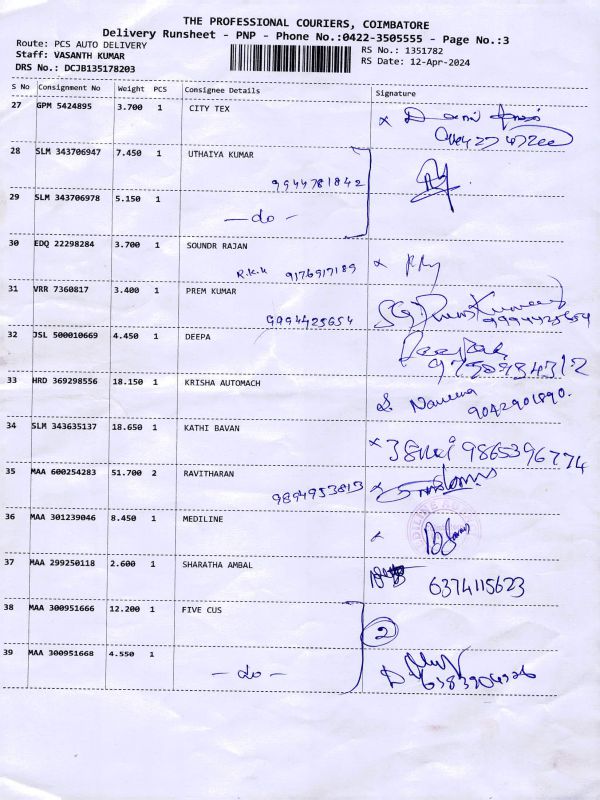 THE PROFESSIONAL COURIERS, COIMBATORE
Delivery Runsheet - PNP - Phone No.:0422-3505555 - Page No.:3
Route: PCS AUTO DELIVERY
RS No.: 1351782
Staff: VASANTH KUMAR
RS Date: 12-Apr-2024
DRS No.: DCJB135178203
S No Consignment No Weight PCS Consignee Details Signature
27 GPM 5424895 3.700 1 CITY TEX
28 SLM 343706947 7.450 1 UTHAIYA KUMAR
9944781842
29 SLM 343706978 5.150 1
- do -
30 EDQ 22298284 3.700 1 SOUNDR RAJAN
R.K.K 9176917189
31 VRR 7360817 3.400 1 PREM KUMAR
9994425654 9994425654
32 JSL 500010669 4.450 1 DEEPA
33 HRD 369298556 18.150 1 KRISHA AUTOMACH
9042901890.
34 SLM 343635137 18.650 1 KATHI BAVAN
9865396774
35 MAA 600254283 51.700 2 RAVITHARAN
9894953813
36 MAA 301239046 8.450 1 MEDILINE
37 MAA 299250118 2.600 1 SHARATHA AMBAL
6374115623
38 MAA 300951666 12.200 1 FIVE CUS
2
39 MAA 300951668 4.550 1
- do -